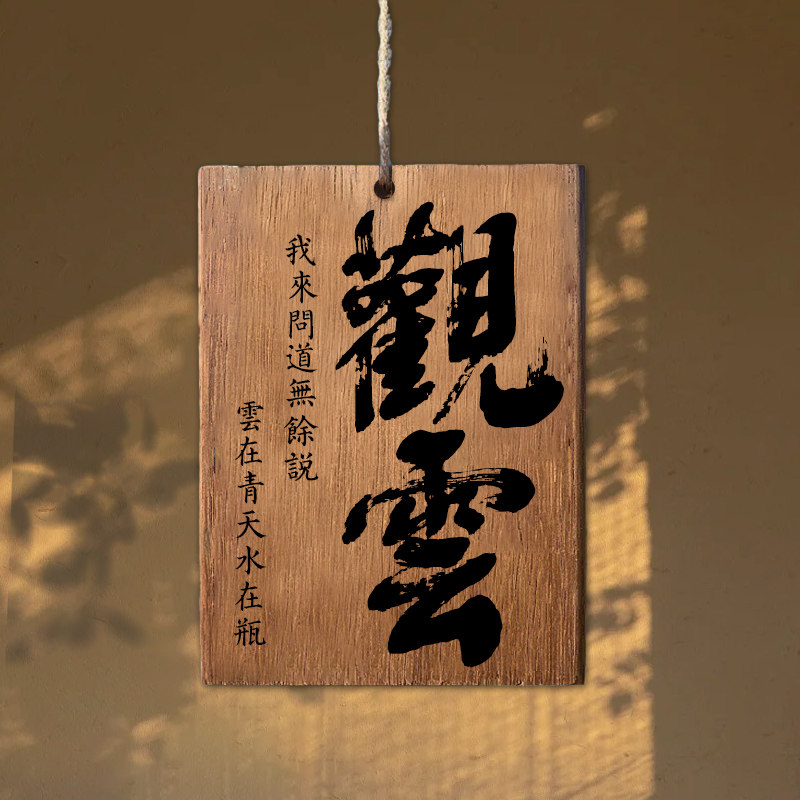 觀雲
我來問道無餘説
雲在青天水在瓶